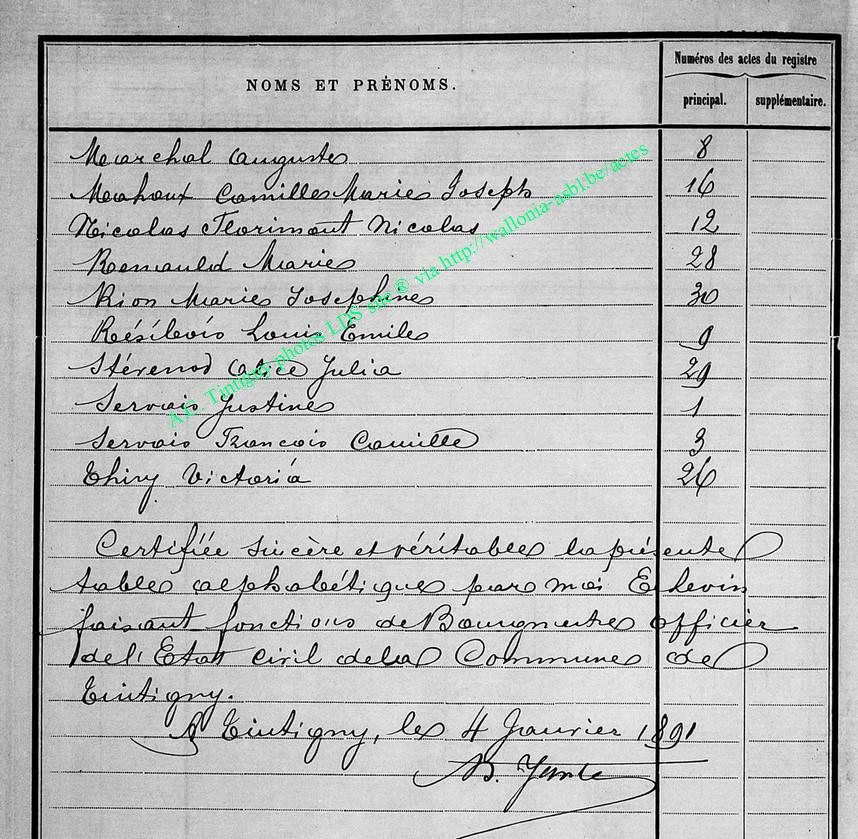 Numéros des actes du registre
NOMS ET PRÉNOMS.
principal. supplémentaire.
Marchal Auguste 8
Mahoux Camille Marie Joseph 16
Nicolas Florimont Nicolas 12
Renauld Marie 28
Rion Marie Joséphine 30
Résibois Louis Emile 9
Stévenod Alice Julia 29
Servais Justine 1
Servais François Camille 3
Thiry Victoria 26
Certifiée sincère et véritable la présente
table alphabétique par moi Echevin
faisant fonctions de Bourgmestre officier
de l'Etat civil de la Commune de
Tintigny.
A Tintigny, le 4 Janvier 1891
A.C. Tintigny photos LDS site® via http://wallonia-asbl.be/actes